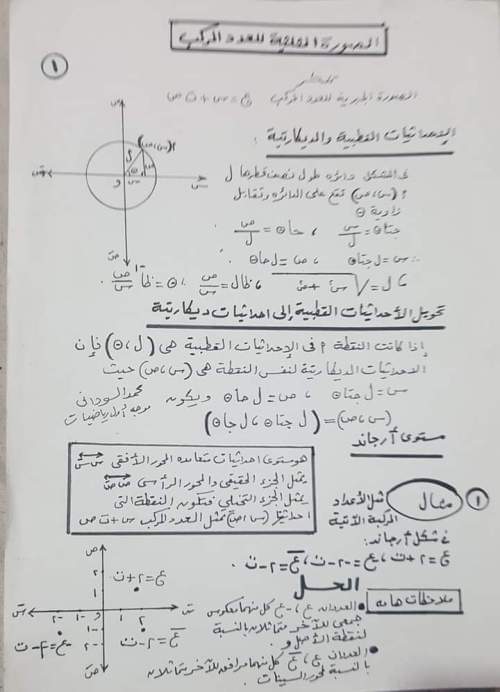 الصورة المثلثية للعدد المركب
١
الصورة الجبرية للعدد المركب ع = س + ت ص
الإحداثيات القطبية والديكارتية :
فى الشكل دائرة طول نصف قطرها ل
٢ (س،ص) تقع على الدائرة وتقابل
زاوية θ
جتاθ = س/ل ، جاθ = ص/ل
∴ س = ل جتاθ ، ص = ل جاθ .
، ل = √س² + ص² ، ظاθ = ص/س ، θ = ظا⁻¹ ص/س .
تحويل الأحداثيات القطبية إلى احداثيات ديكارتية
إذا كانت النقطة ٢ فى الإحداثيات القطبية هى (ل،θ) فإن
الاحداثيات الديكارتية لنفس النقطة هى (س،ص) حيث
س = ل جتاθ ، ص = ل جاθ ويكون
(س،ص) = (ل جتاθ ، ل جاθ)
محمد السودانى
موجه أول رياضيات
مستوى أرجاند
هو مستوى احداثيات متعامد المحور الأفقى س س
يمثل الجزء الحقيقى والمحور الرأسى ص ص
يمثل الجزء التخيلى فتكون النقطة التى
احداثيها (س،ص) تمثل العدد المركب س + ت ص
١ مثال
مثل الأعداد
المركبة الآتية
فى شكل أرجاند :
ع = ٢ + ت ، -ع = -٢ - ت ، ع = ٢ - ت .
الحل
ملاحظات هامه
العددان ع ، -ع كل منهما معكوس
جمعى للآخر متماثلان بالنسبة
لنقطة الأصل و .
العددان ع ، ع كل منهما مرافق للآخر متماثلان
بالنسبة لمحور السينات .
ع = ٢ + ت
ع = ٢ - ت
-ع = -٢ - ت